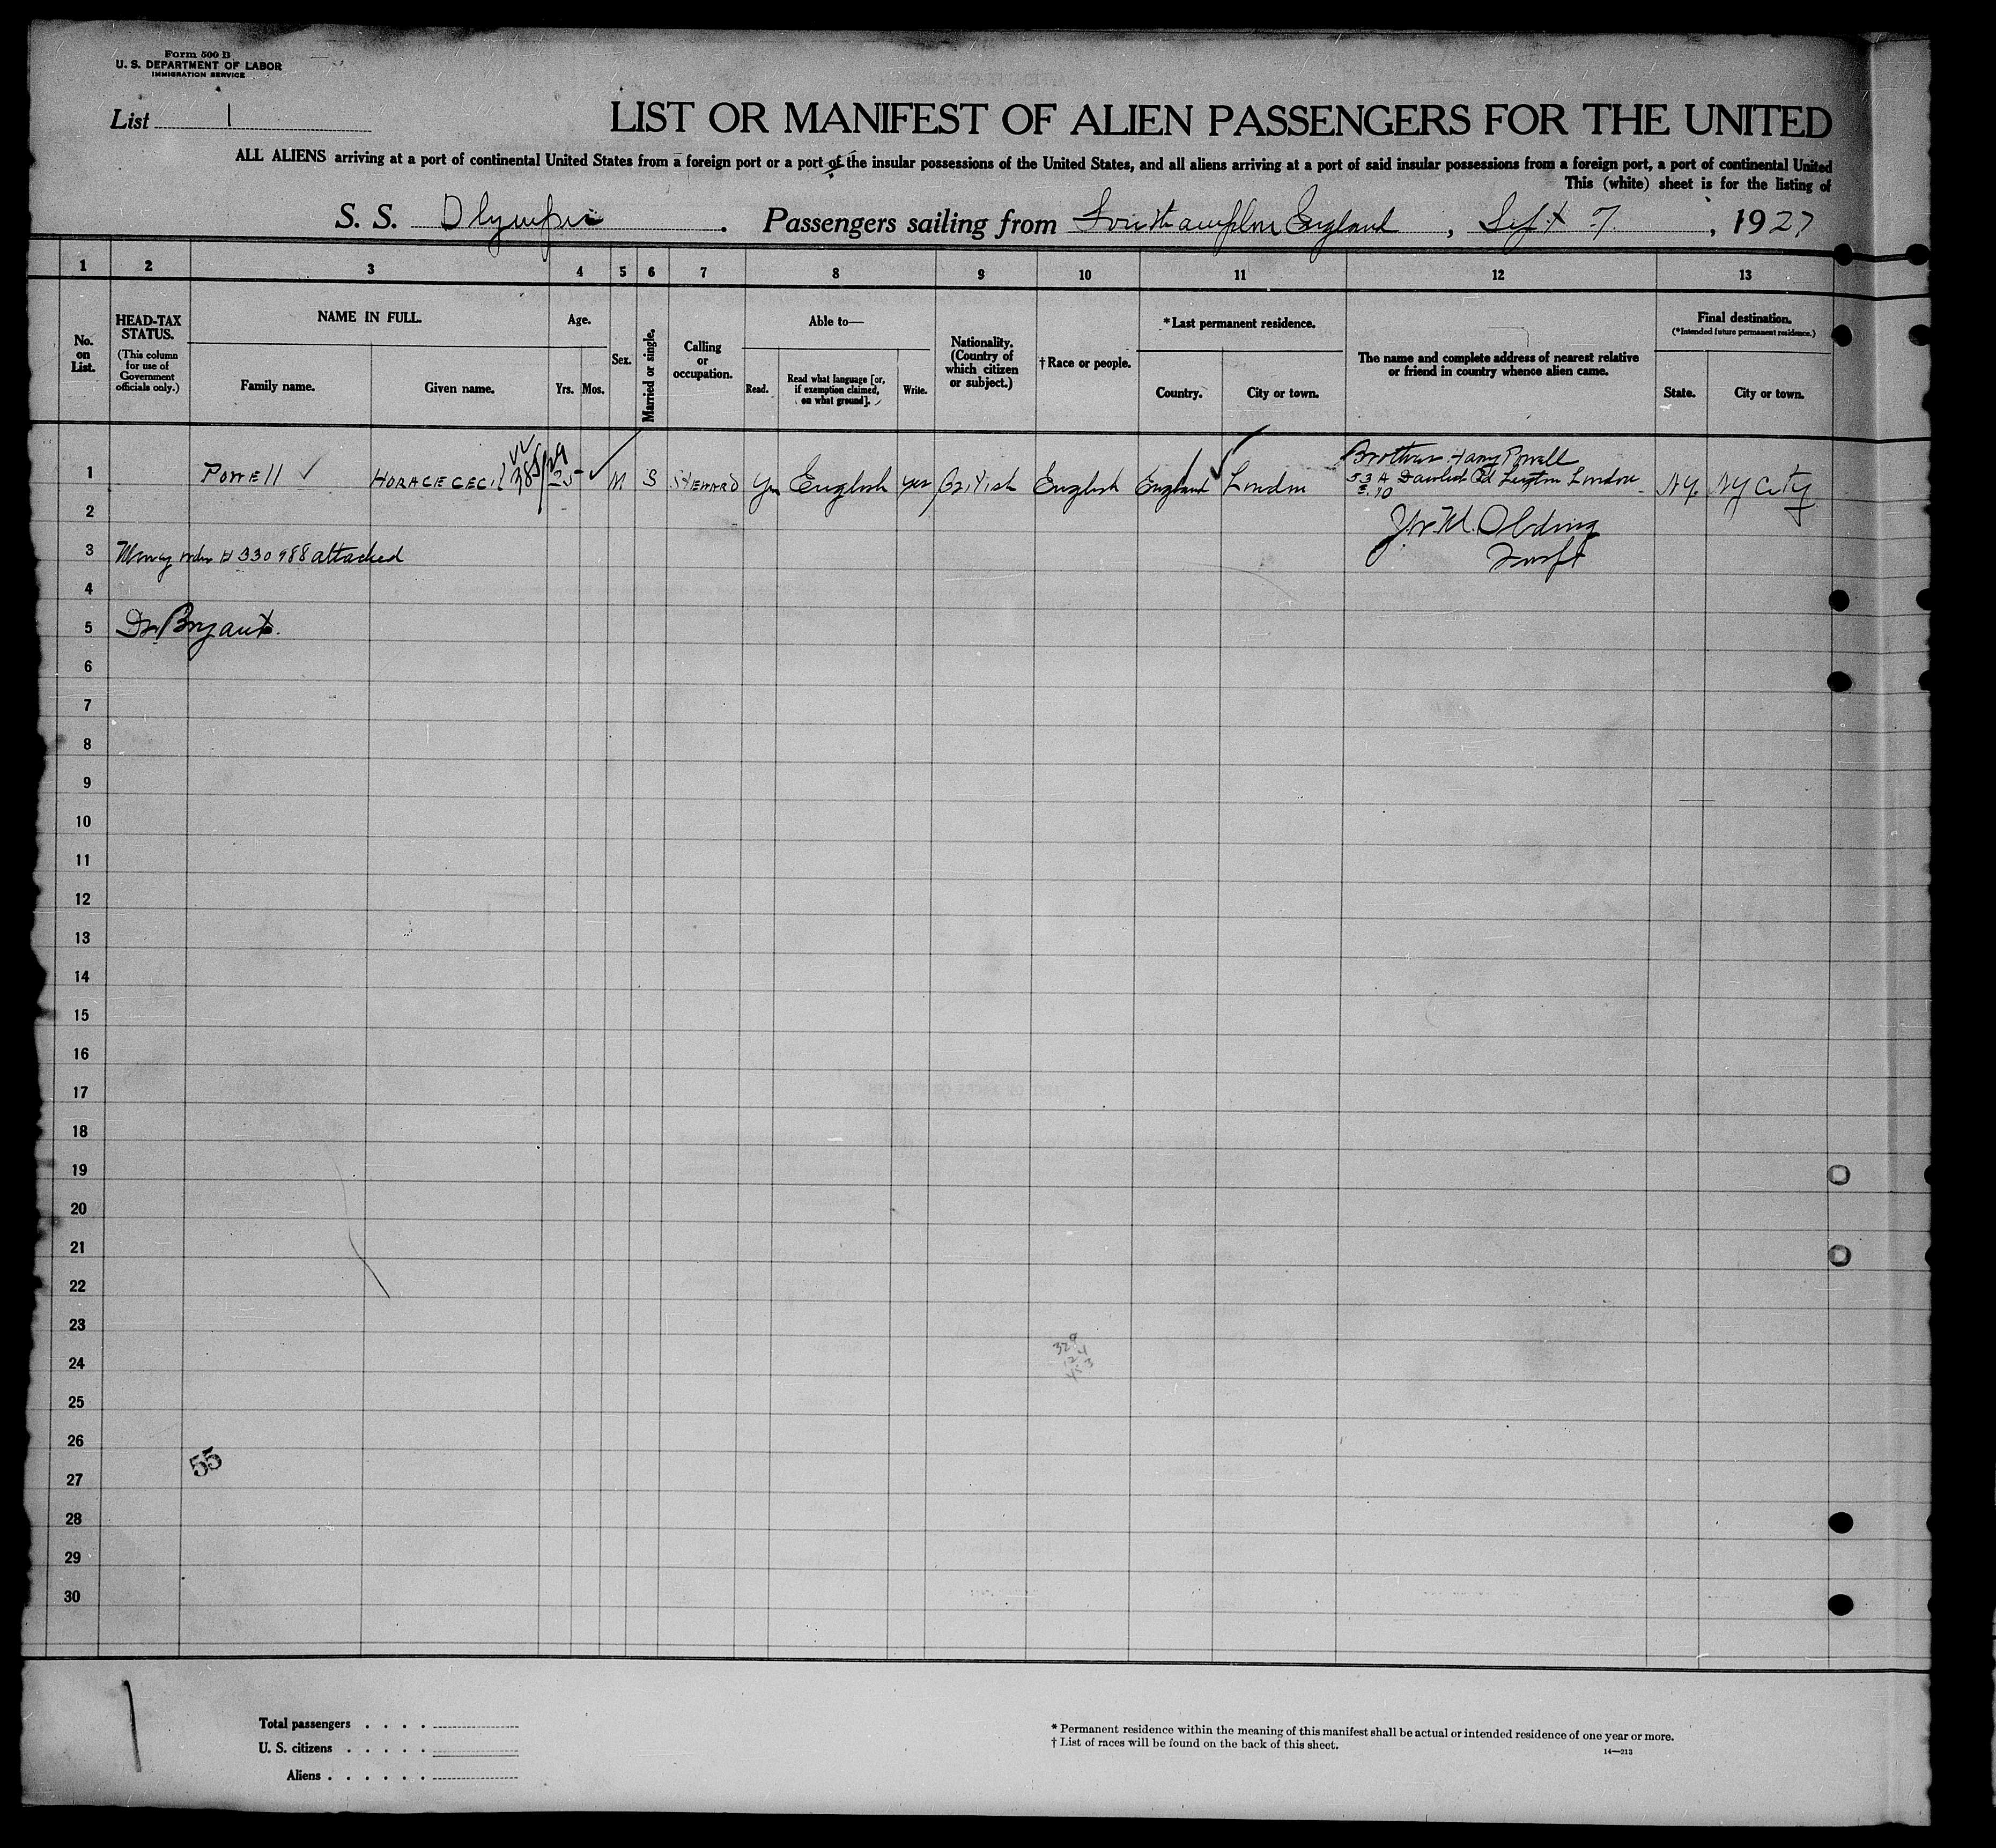 Form 500 B
U. S. DEPARTMENT OF LABOR
IMMIGRATION SERVICE
List 1
LIST OR MANIFEST OF ALIEN PASSENGERS FOR THE UNITED
ALL ALIENS arriving at a port of continental United States from a foreign port or a port of the insular possessions of the United States, and all aliens arriving at a port of said insular possessions from a foreign port, a port of continental United
This (white) sheet is for the listing of
S. S. Olympic . Passengers sailing from Southampton England , Sept 7 , 1927
1 2 3 4 5 6 7 8 9 10 11 12 13
No. on List.
HEAD-TAX STATUS.
(This column for use of Government officials only.)
NAME IN FULL.
Family name.
Given name.
Age.
Yrs. Mos.
Sex.
Married or single.
Calling or occupation.
Able to—
Read.
Read what language [or, if exemption claimed, on what ground].
Write.
Nationality. (Country of which citizen or subject.)
† Race or people.
* Last permanent residence.
Country.
City or town.
The name and complete address of nearest relative or friend in country whence alien came.
Final destination.
(*Intended future permanent residence.)
State.
City or town.
1 POWELL HORACE CECIL 25 M S STEWARD Yes English yes British English England London Brother Harry Powell
53 A Dawlish Rd Leyton London N.Y. NY City
E.10
2
3 Money order # 330988 attached
4
5 Dr Bryant.
6
7
8
9
10
11
12
13
14
15
16
17
18
19
20
21
22
23
329
24
124
453
25
26
55
27
28
29
30
Total passengers . . . .
U. S. citizens . . . . .
Aliens . . . . . .
* Permanent residence within the meaning of this manifest shall be actual or intended residence of one year or more.
† List of races will be found on the back of this sheet.
14—213